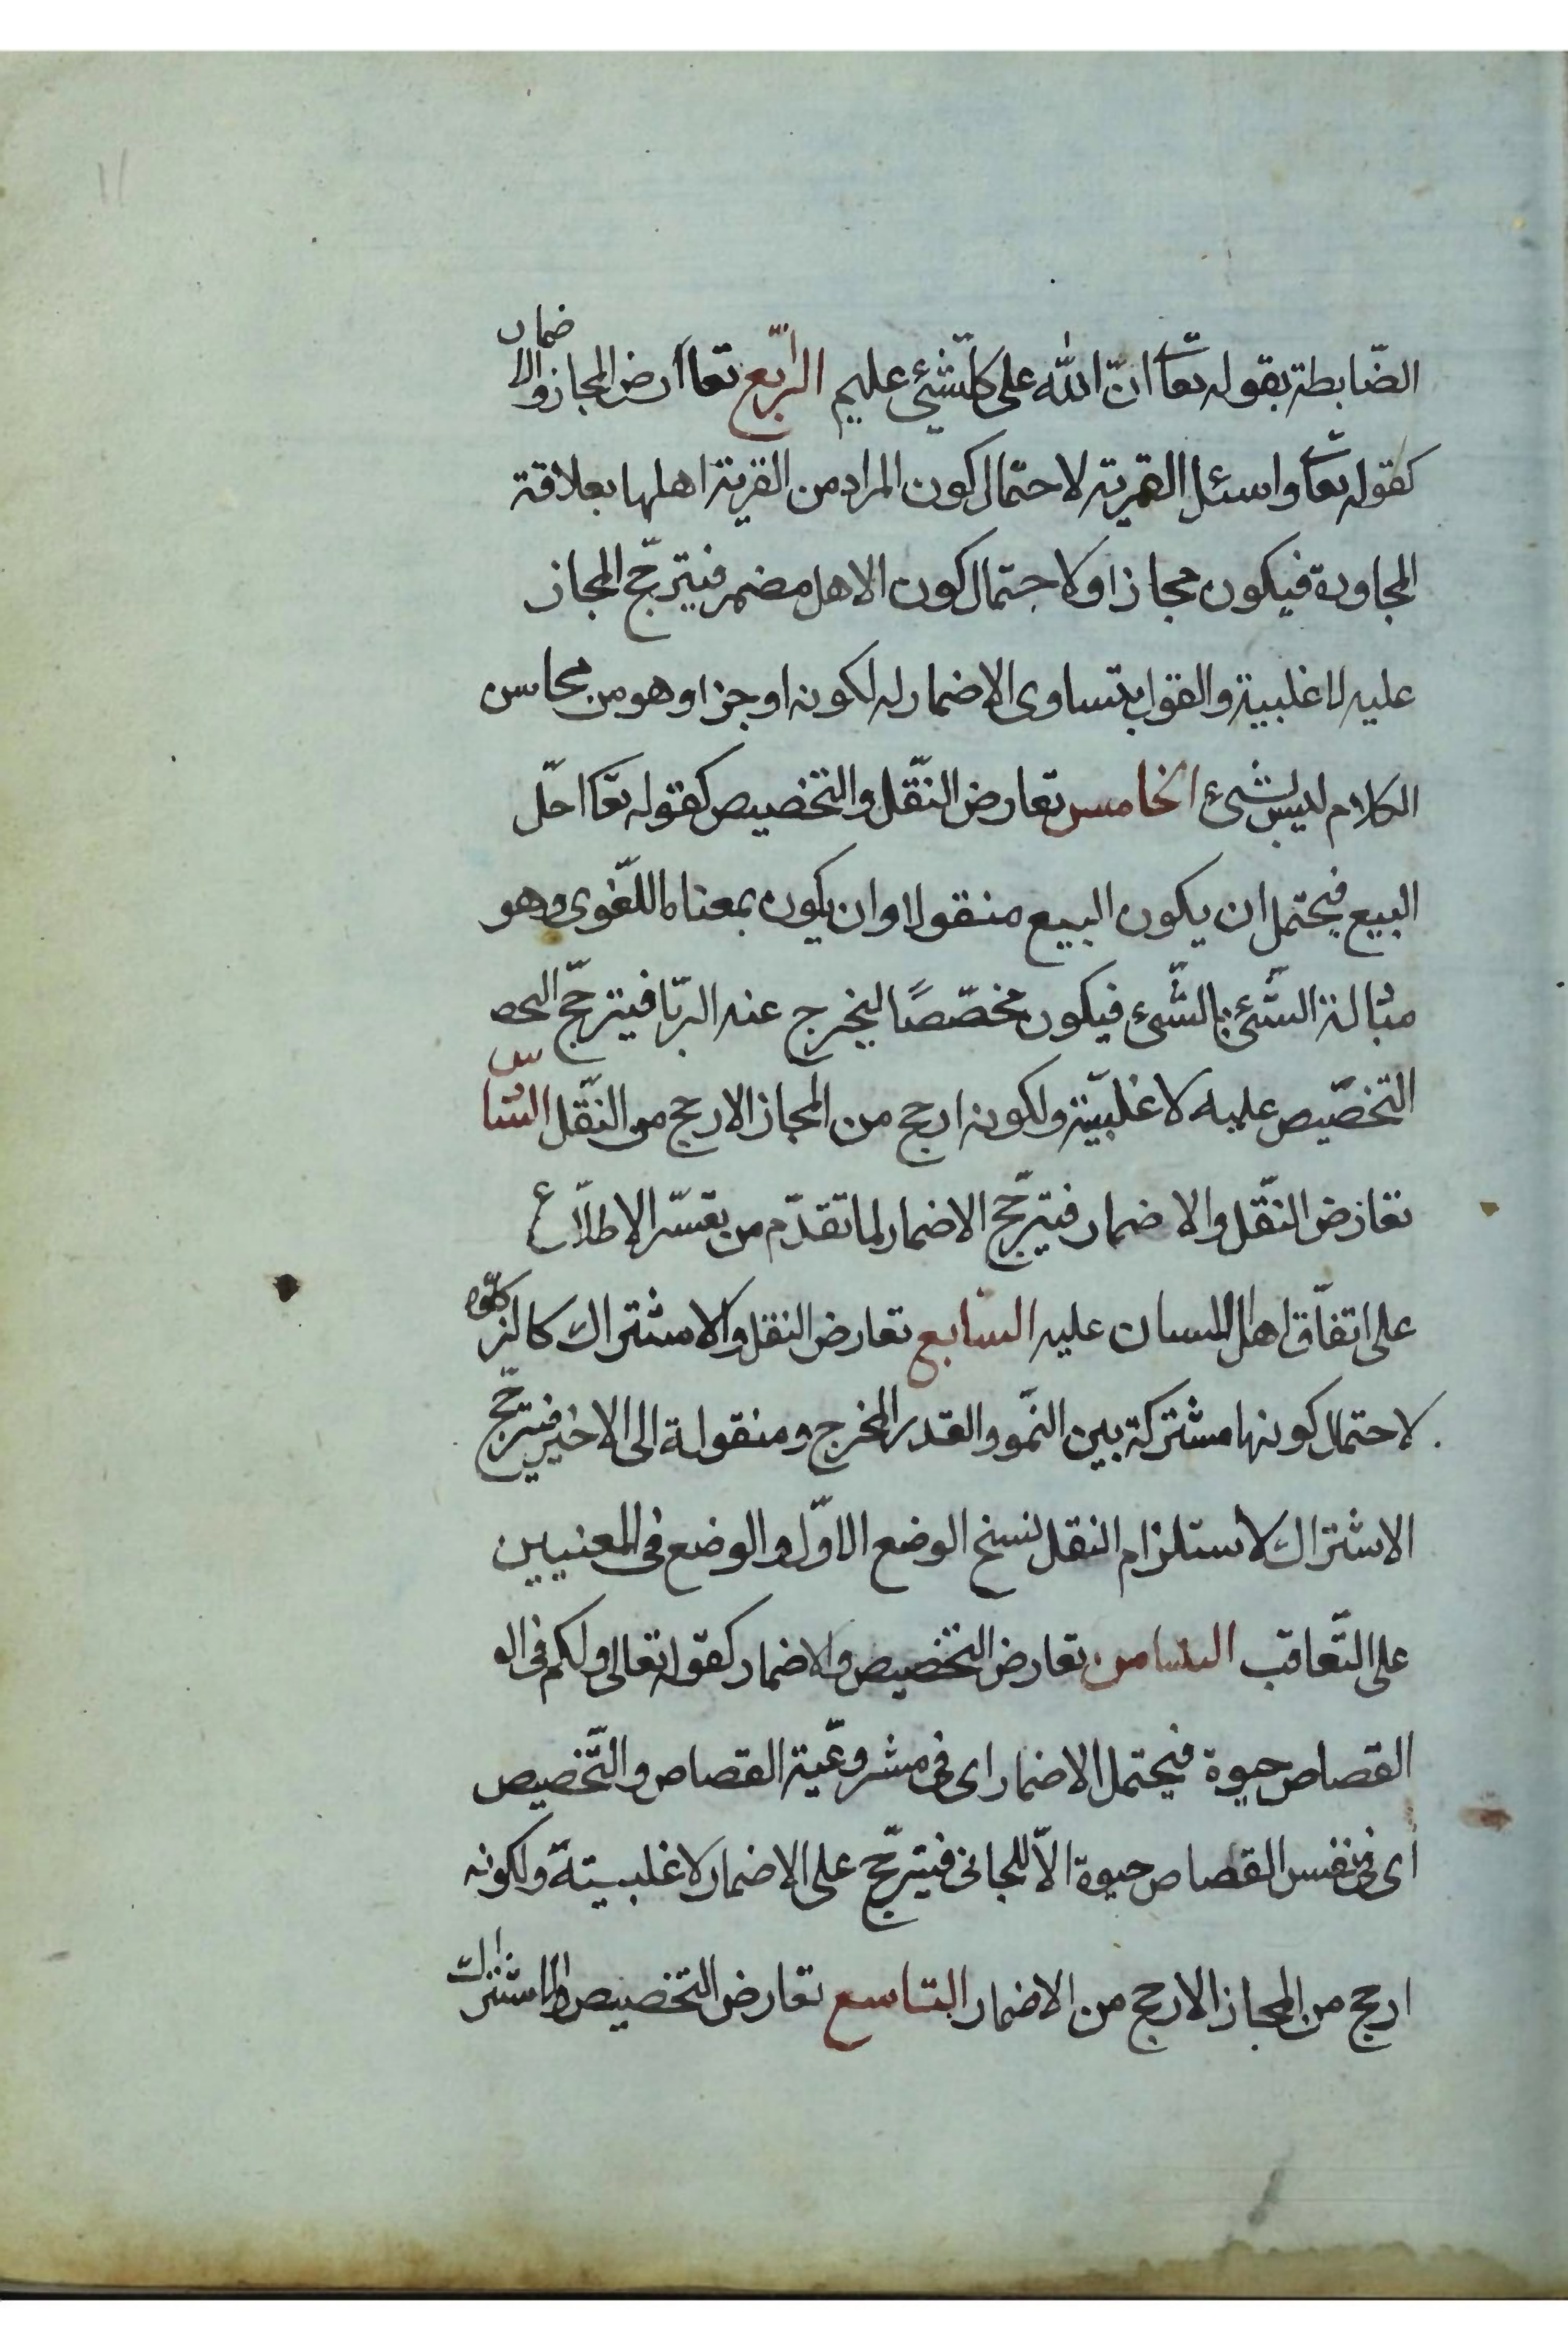 الضّابطة بقوله تعآ انّ الله على كلّشئ عليم الرّابع تعاارض المجاز والاضمار
كقوله تعآ واسئل القرية لاحتمال كون المراد من القرية اهلها بعلاقة
المجاورة فيكون مجازا ولاحتمال كون الاهل مضمر فيترجّح المجاز
عليه لاغلبية والقول بتساوى الاضمار له لكونه اوجزا وهو من محاسن
الكلام ليس بشئ الخامس تعارض النّقل والتخصيص كقوله تعآ احلّ
البيع فيحتمل ان يكون البيع منقولا وان يكون بمعناه اللّغوى وهو
مبٰالة الشّئ بالشّئ فيكون مخصّصًا ليخرج عنه الرّبا فيترجّح التحص
التخصّيص عليه لاغلبيّة ولكونه ارجح من المجاز الارجح من النّقل السّادس
تعارض النّقل والاضمار فيترجّح الاضمار لما تقدّم من تعسّر الاطلّاع
على اتفّاق اهل اللسان عليه السّابع تعارض النقل والاشتراك كالزكوة
لاحتمال كونها مشتركة بين النّمو والقدر المخرج ومنقولة الى الاخير فيترجّح
الاشتراك لاستلزام النقل نسخ الوضع الاوّل والوضع فى المعنيين
على التّعاقب الثامن تعارض التخصيص والاضمار كقوله تعالى ولكم فى الو
القصاص حيوة فيحتمل الاضمار اى فى مشروعّية القصاص والتّخصيص
اى فى نفس القصاص حيوة الاّ للجانى فيترجّح على الاضمار لاغلبيتة ولكونه
ارجح من المجاز الارجح من الاضمار التاسع تعارض التخصيص والاشتراك